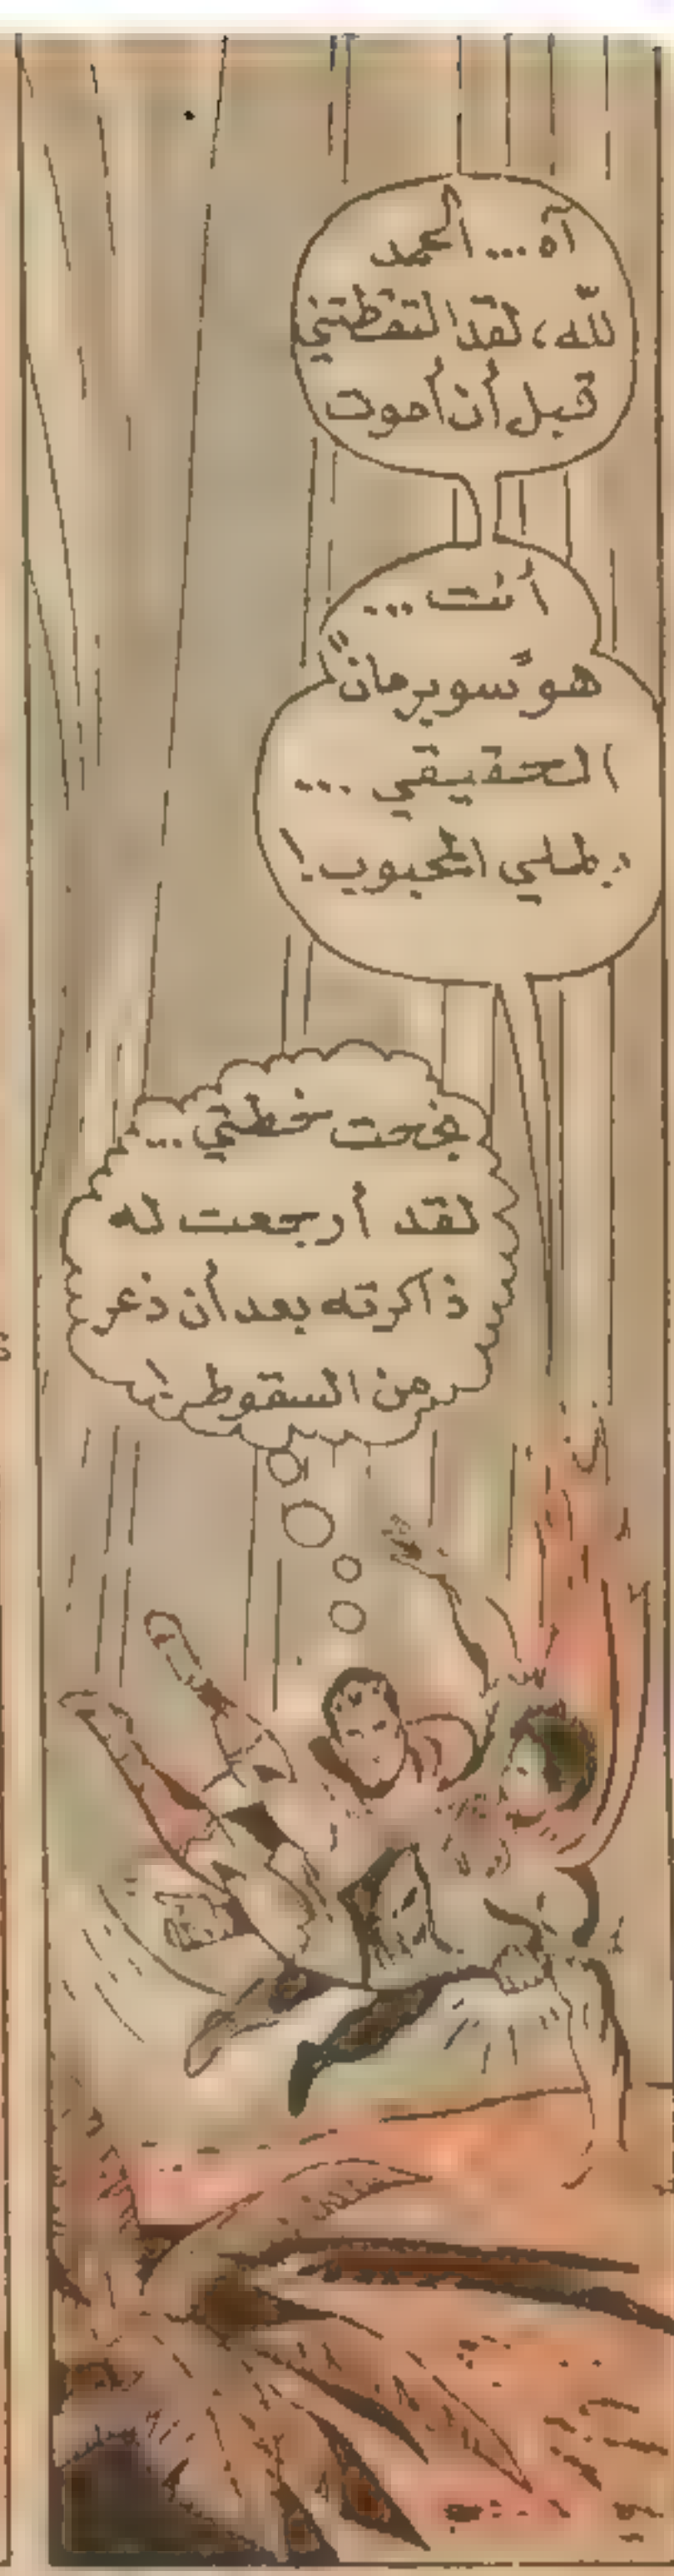 آه... الحمد
لله، لقد التقطتني
قبل أن أموت
أنت...
هو "سوبرمان"
الحقيقي...
بطلي المحبوب!
نجحت خطتي...
لقد أرجعت له
ذاكرته بعد أن ذعر
من السقوط!